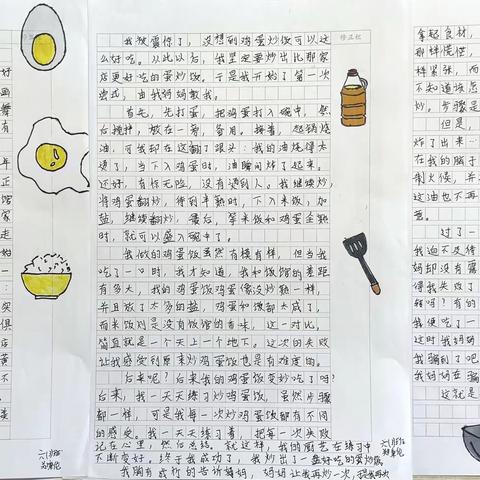 修正栏
我被震惊了，没想到鸡蛋炒饭可以这
么好吃。从此以后，我坚定要炒出比那家
店更好吃的蛋炒饭。于是我开始了第一次
尝试，由我妈妈教我。
首先，先打蛋，把鸡蛋打入碗中，然
后搅拌，放在一旁，备用。接着，起锅烧
油，可我却在这翻了跟头：我的油烧得太
烫了，当下入鸡蛋时，油瞬间炸了起来。
还好，有惊无险，没有遇到人。我继续炒，
将鸡蛋翻炒，待到半熟时，下入米饭，加
盐，继续翻炒，最后，等米饭和鸡蛋全熟
时，就可以盛入碗中了。
我做的鸡蛋饭虽然有模有样，但当我
吃了一口时，我才知道，我和饭馆的差距
有多大，我的鸡蛋饭鸡蛋像没炒熟一样，
并且放了太多的盐，鸡蛋和饭都太咸了，
而米饭则是没有饭馆的香味，这一对比，
简直就是一个天上一个地下。这次的失败
让我感受到原来炒鸡蛋饭也是有难度的。
后来呢？后来我的鸡蛋饭变好吃了吗？
后来，我一天天练习炒蛋饭，虽然步骤
都一样，可是我每一次炒鸡蛋饭都有不同
的感受。我一天天练习着，把每一次失败
记在心里，然后总结，就这样，我的厨艺在练习中
不断变好。终于我成功了，我炒出了一盘好吃的蛋炒饭，
我胸有成竹的告诉妈妈，妈妈让我再炒一次，
拿起食材，
那样慌慌，
样紧张，而
不知道该怎
炒。步骤是
但是，
炸了出来：
在我的脑子
制火候，并
这油也不再
营。
过了一
我迫不及待
妈却没有露
得我失败了
错吗？有的
我便吃了一
这时我妈妈
我骗到了吧
我妈妈在骗
这就是